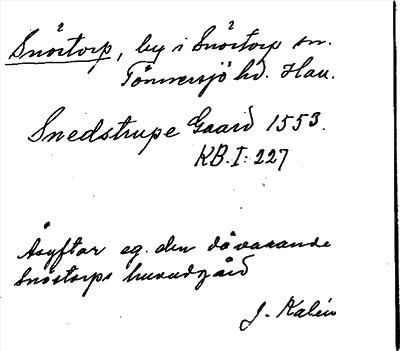 Snöstorp, by i Snöstorp sn.
Tönnersjö hd. Hall.
Snedstrupe Gaard 1553.
KB. I: 227
Åsyftar eg. den dåvarande
Snöstorps huvudgård
J. Kalén